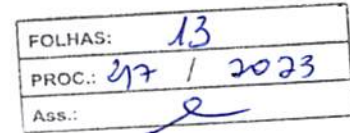 FOLHAS: 13
PROC.: 217 / 2023
Ass.: